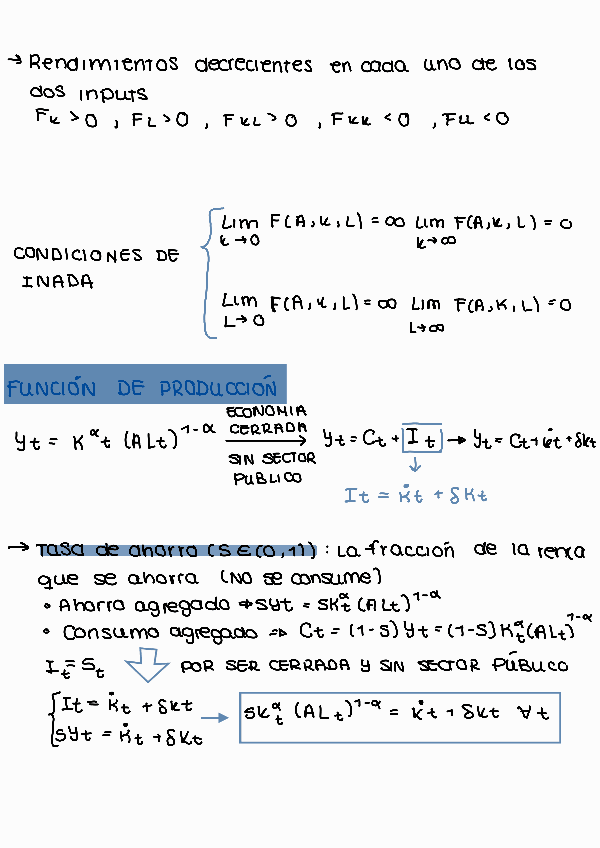 → Rendimientos decrecientes en cada uno de los
dos inputs
Fk > 0 , FL > 0 , FKL > 0 , FKK < 0 , FLL < 0
CONDICIONES DE
INADA
Lim F(A,K,L) = ∞ Lim F(A,K,L) = 0
K→0 K→∞
Lim F(A,K,L) = ∞ Lim F(A,K,L) = 0
L→0 L→∞
FUNCIÓN DE PRODUCCIÓN
Yt = K^α t (ALt)^1-α ECONOMIA CERRADA SIN SECTOR PUBLICO → Yt = Ct + It → Yt = Ct + K̇t + δKt
↓
It = K̇t + δKt
→ Tasa de ahorro (S∈(0,1)) : La fracción de la renta
que se ahorra (No se consume)
• Ahorro agregado ⇒ sYt = sKt^α (ALt)^1-α
• Consumo agregado ⇒ Ct = (1-s)Yt = (1-s)Kt^α(ALt)^1-α
It = St POR SER CERRADA Y SIN SECTOR PÚBLICO
It = K̇t + δKt
sYt = K̇t + δKt
→ sKt^α (ALt)^1-α = K̇t + δKt ∀t